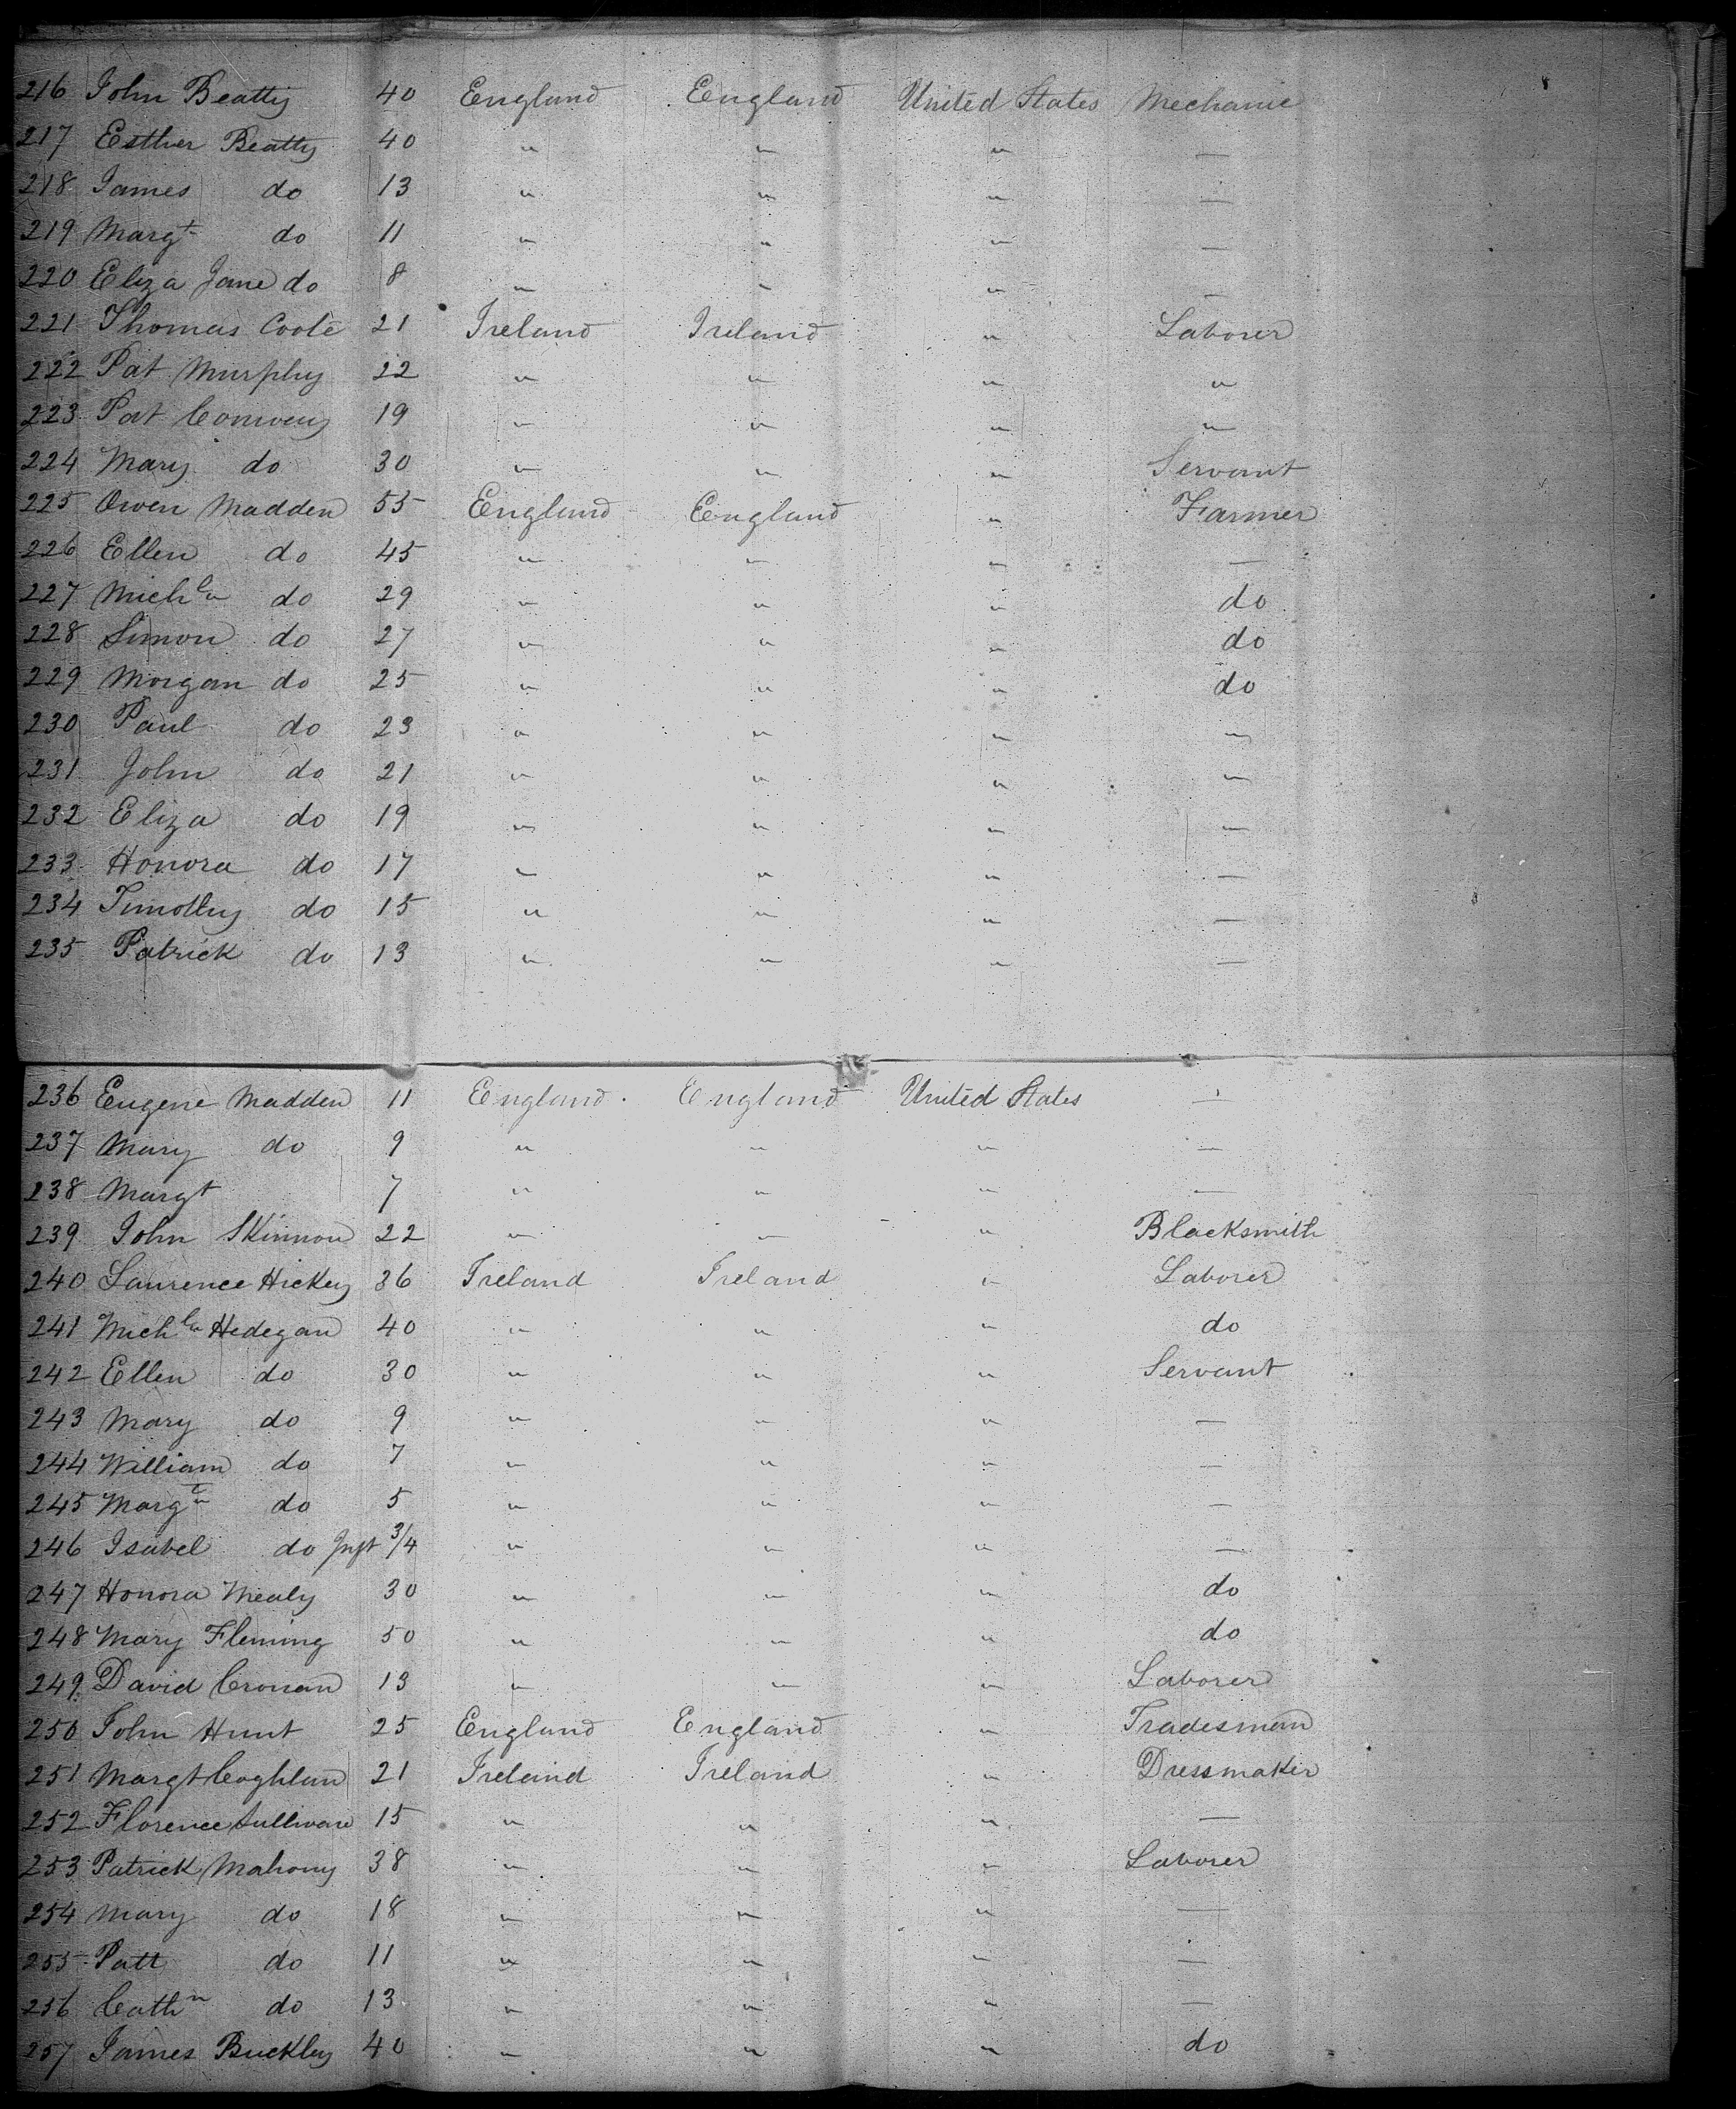 216 John Beatty 40 England England United States Mechanic
217 Esther Beatty 40 " " " —
218 James do 13 " " " —
219 Margt do 11 " " " —
220 Eliza Jane do 8 " " " —
221 Thomas Coote 21 Ireland Ireland " Laborer
222 Pat Murphy 22 " " " "
223 Pat Conway 19 " " " "
224 Mary do 30 " " " Servant
225 Owen Madden 55 England England " Farmer
226 Ellen do 45 " " " —
227 Michl do 29 " " " do
228 Simon do 27 " " " do
229 Morgan do 25 " " " do
230 Paul do 23 " " " "
231 John do 21 " " " "
232 Eliza do 19 " " " —
233 Honora do 17 " " " —
234 Timothy do 15 " " " —
235 Patrick do 13 " " " —
236 Eugene Madden 11 England England United States —
237 Mary do 9 " " " —
238 Margt 7 " " " —
239 John Skinnon 22 " " " Blacksmith
240 Laurence Hickey 36 Ireland Ireland " Laborer
241 Michl Hedegan 40 " " " do
242 Ellen do 30 " " " Servant
243 Mary do 9 " " " —
244 William do 7 " " " —
245 Margt do 5 " " " —
246 Isabel do Inft 3/4 " " " —
247 Honora Mealy 30 " " " do
248 Mary Fleming 50 " " " do
249 David Cronan 13 " " " Laborer
250 John Hunt 25 England England " Tradesman
251 Margt Coghlan 21 Ireland Ireland " Dressmaker
252 Florence Sullivan 15 " " " —
253 Patrick Mahony 38 " " " Laborer
254 Mary do 18 " " " —
255 Patt do 11 " " " —
256 Cathn do 13 " " " —
257 James Buckley 40 " " " do